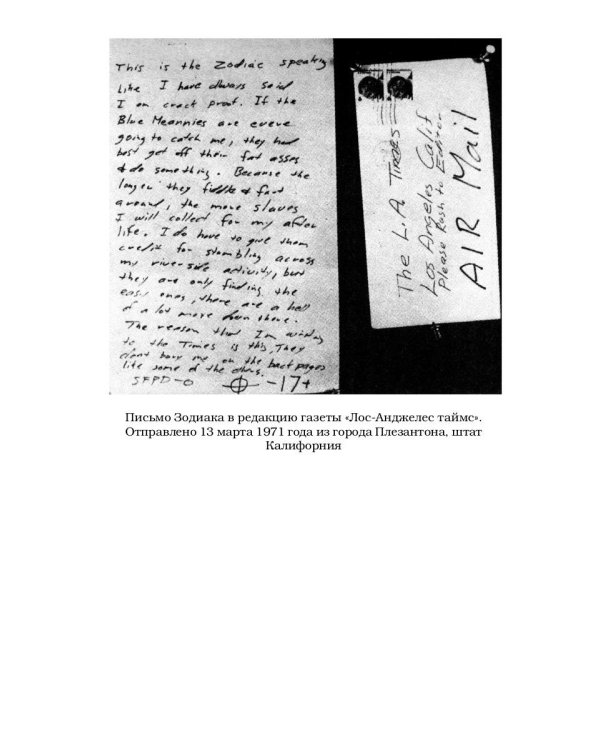 This is the Zodiac speaking
Like I have always said
I am crack proof. If the
Blue Meannies are evere
going to catch me, they had
best get off their fat asses
& do something. Because the
longer they fiddle & fart
around, the more slaves
I will collect for my after
life. I do have to give them
credit for stumbling across
my riverside activity, but
they are only finding the
easy ones, there are a hell
of a lot more down there.
The reason that Im writing
to the Times is this, They
dont bury me on the back pages
like some of the others.
SFPD-0 -17+
The L.A. Times
Los Angeles Calif
Please Rush to Editor
AIR Mail
Письмо Зодиака в редакцию газеты «Лос-Анджелес таймс».
Отправлено 13 марта 1971 года из города Плезантона, штат
Калифорния